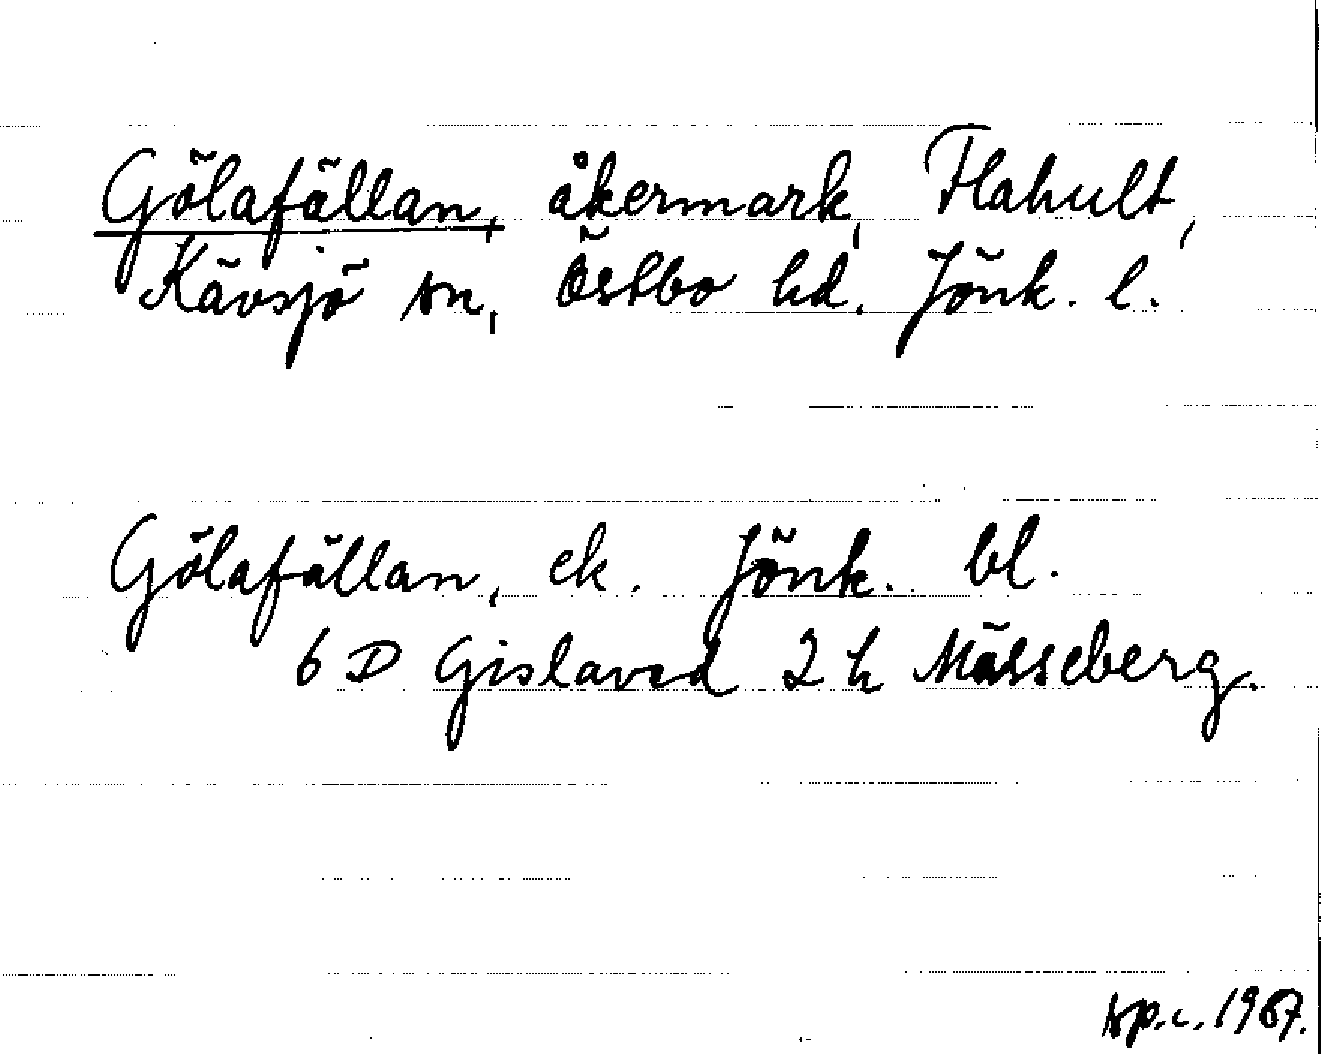 Gölafällan, åkermark, Flahult,
Kävsjö sn, Östbo hd. Jönk. l.
Gölafällan, ek. Jönk. bl.
6 D Gislaved 2 h Mässeberg.
1967.